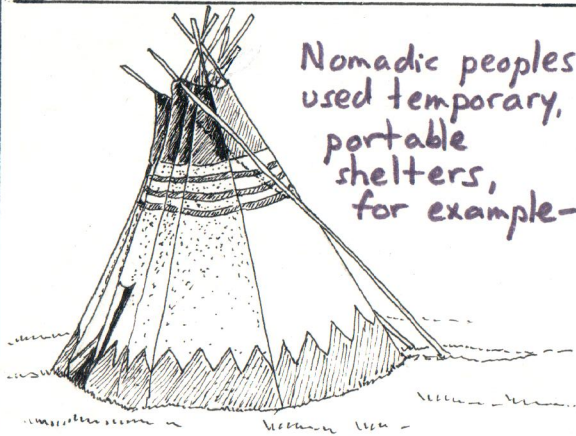 Nomadic peoples
used temporary,
portable
shelters,
for example-